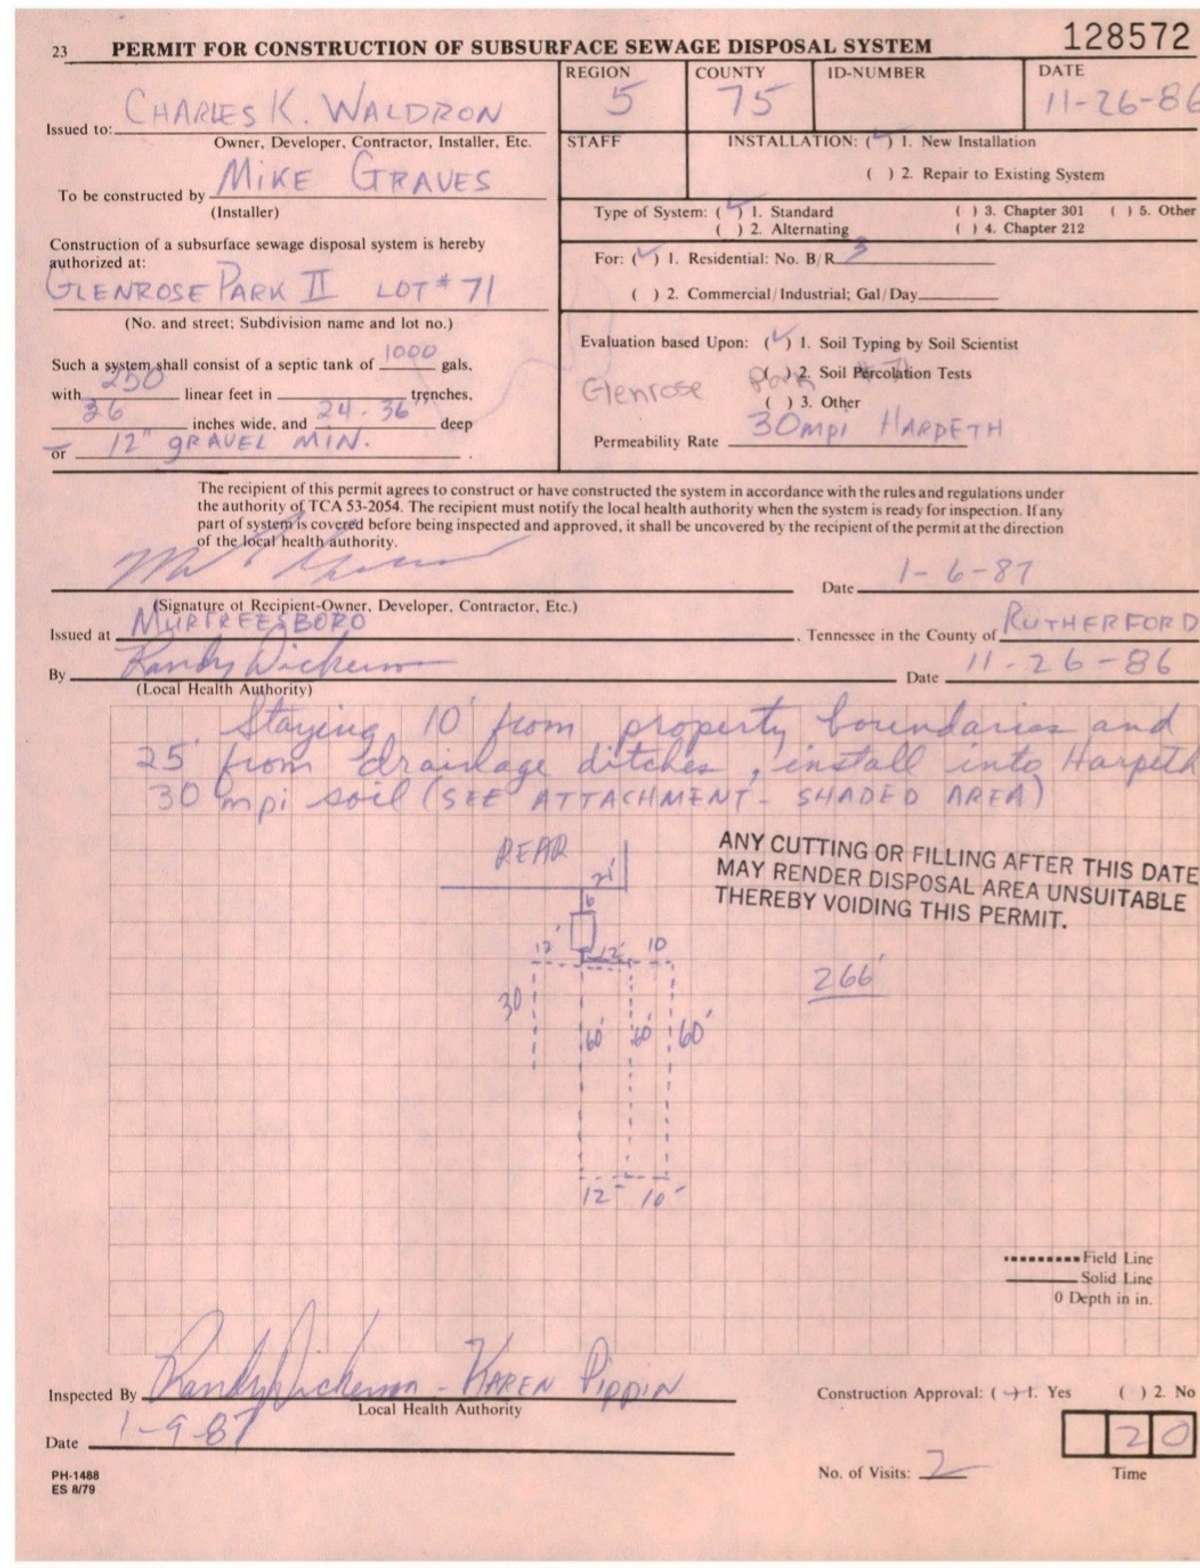 23 PERMIT FOR CONSTRUCTION OF SUBSURFACE SEWAGE DISPOSAL SYSTEM 128572
Issued to: CHARLES K. WALDRON
Owner, Developer, Contractor, Installer, Etc.
To be constructed by MIKE GRAVES
(Installer)
Construction of a subsurface sewage disposal system is hereby
authorized at:
GLENROSE PARK II LOT # 71
(No. and street; Subdivision name and lot no.)
Such a system shall consist of a septic tank of 1000 gals,
with 250 linear feet in trenches,
36 inches wide, and 24-36" deep
or 12" GRAVEL MIN.
REGION 5
COUNTY 75
ID-NUMBER
DATE 11-26-86
STAFF
INSTALLATION: (✓) 1. New Installation
( ) 2. Repair to Existing System
Type of System: (✓) 1. Standard ( ) 3. Chapter 301 ( ) 5. Other
( ) 2. Alternating ( ) 4. Chapter 212
For: (✓) 1. Residential: No. B/R 3
( ) 2. Commercial/Industrial; Gal/Day
Evaluation based Upon: (✓) 1. Soil Typing by Soil Scientist
( ) 2. Soil Percolation Tests
Glenrose Park
( ) 3. Other
Permeability Rate 30mpi HARPETH
The recipient of this permit agrees to construct or have constructed the system in accordance with the rules and regulations under
the authority of TCA 53-2054. The recipient must notify the local health authority when the system is ready for inspection. If any
part of system is covered before being inspected and approved, it shall be uncovered by the recipient of the permit at the direction
of the local health authority.
Date 1-6-87
(Signature of Recipient-Owner, Developer, Contractor, Etc.)
Issued at MURFREESBORO, Tennessee in the County of RUTHERFORD
By Randy Dickerson Date 11-26-86
(Local Health Authority)
Staying 10' from property boundaries and
25' from drainage ditches, install into Harpeth
30 mpi soil (SEE ATTACHMENT - SHADED AREA)
ANY CUTTING OR FILLING AFTER THIS DATE
MAY RENDER DISPOSAL AREA UNSUITABLE
THEREBY VOIDING THIS PERMIT.
REAR
21'
6
12' 12' 10
266'
30
60' 60' 60'
12' 10'
Field Line
Solid Line
0 Depth in in.
Inspected By Randy Dickerson - KAREN PIPPIN
Local Health Authority
Construction Approval: (✓) 1. Yes ( ) 2. No
Date 1-9-87
20
No. of Visits: 2
Time
PH-1488
ES 8/79